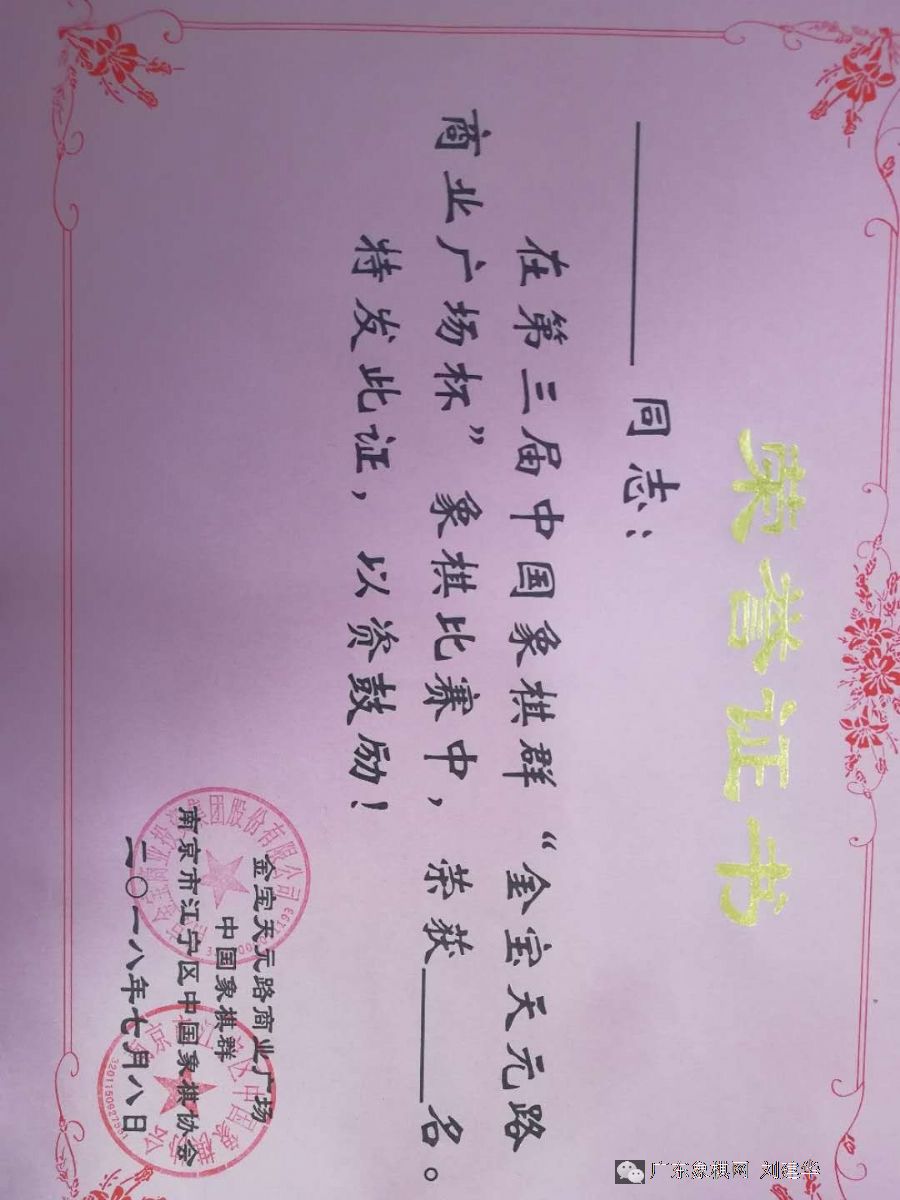 荣誉证书
同志：
在第三届中国象棋群“金宝天元路
商业广场杯”象棋比赛中，荣获______名。
特发此证，以资鼓励！
金宝天元路商业广场
中国象棋群
南京市江宁区中国象棋协会
二〇一八年七月八日
集团股份有限公司
广东象棋网 刘建华